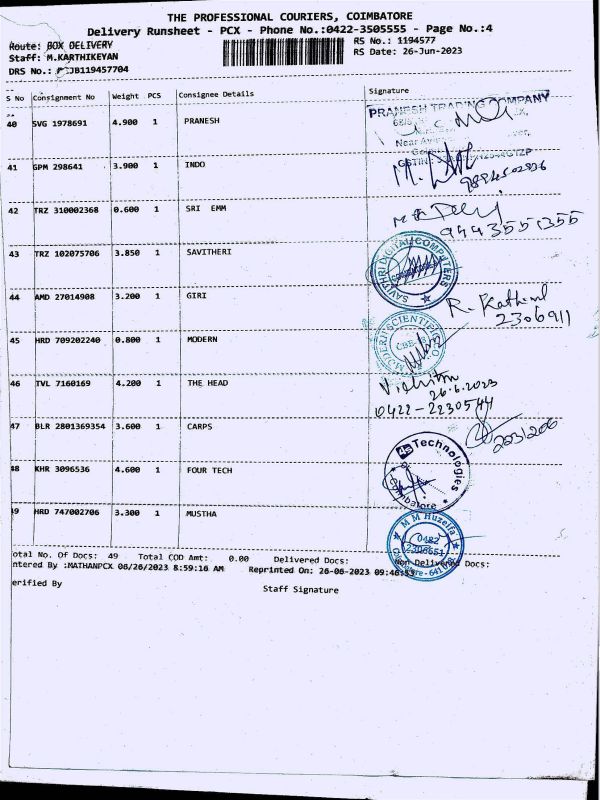 THE PROFESSIONAL COURIERS, COIMBATORE
Delivery Runsheet - PCX - Phone No.:0422-3505555 - Page No.:4
Route: BOX DELIVERY
RS No.: 1194577
Staff: M.KARTHIKEYAN
RS Date: 26-Jun-2023
DRS No.: JB119457704
S No Consignment No Weight PCS Consignee Details Signature
40 SVG 1978691 4.900 1 PRANESH
PRANESH TRADING COMPANY
41 GPM 298641 3.900 1 INDO
42 TRZ 310002368 0.600 1 SRI EMM
9443551355
43 TRZ 102075706 3.850 1 SAVITHERI
SAVITHRI DIGITAL COMPUTERS
44 AMD 27014908 3.200 1 GIRI
R. Kathirvel
2306911
45 HRD 709202240 0.800 1 MODERN
MODERN SCIENTIFIC CO
46 TVL 7160169 4.200 1 THE HEAD
26.6.2023
0422-2230544
47 BLR 2801369354 3.600 1 CARPS
2231206
48 KHR 3096536 4.600 1 FOUR TECH
4S Technologies
Coimbatore
49 HRD 747002706 3.300 1 MUSTHA
M M Huzeifa
0422
2306651
otal No. Of Docs: 49 Total COD Amt: 0.00 Delivered Docs: Non Delivered Docs:
ntered By :MATHANPCX 06/26/2023 8:59:16 AM Reprinted On: 26-06-2023 09:46:53
erified By
Staff Signature